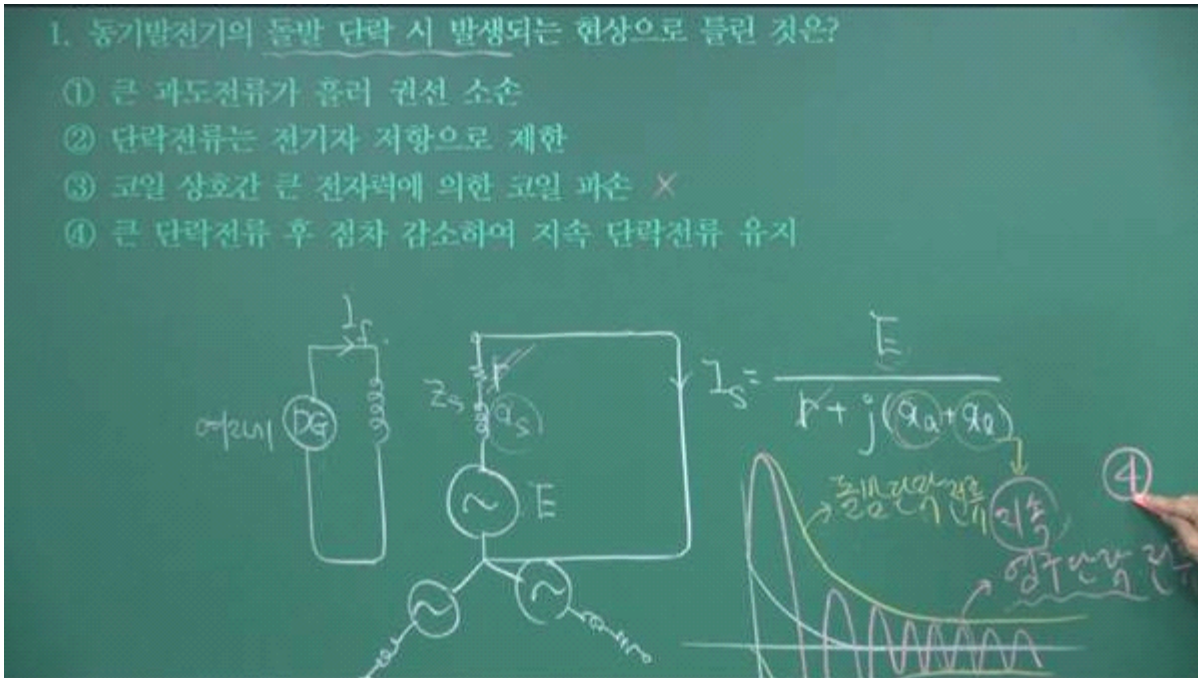 1. 동기발전기의 돌발 단락 시 발생되는 현상으로 틀린 것은?
① 큰 과도전류가 흘러 권선 소손
② 단락전류는 전기자 저항으로 제한
③ 코일 상호간 큰 전자력에 의한 코일 파손 ×
④ 큰 단락전류 후 점차 감소하여 지속 단락전류 유지
I_f
여자기 DG
Z_s r x_s
~ E
~ ~
I_s = E / r + j(x_a + x_l)
돌발단락전류
지속
④
영구단락전류